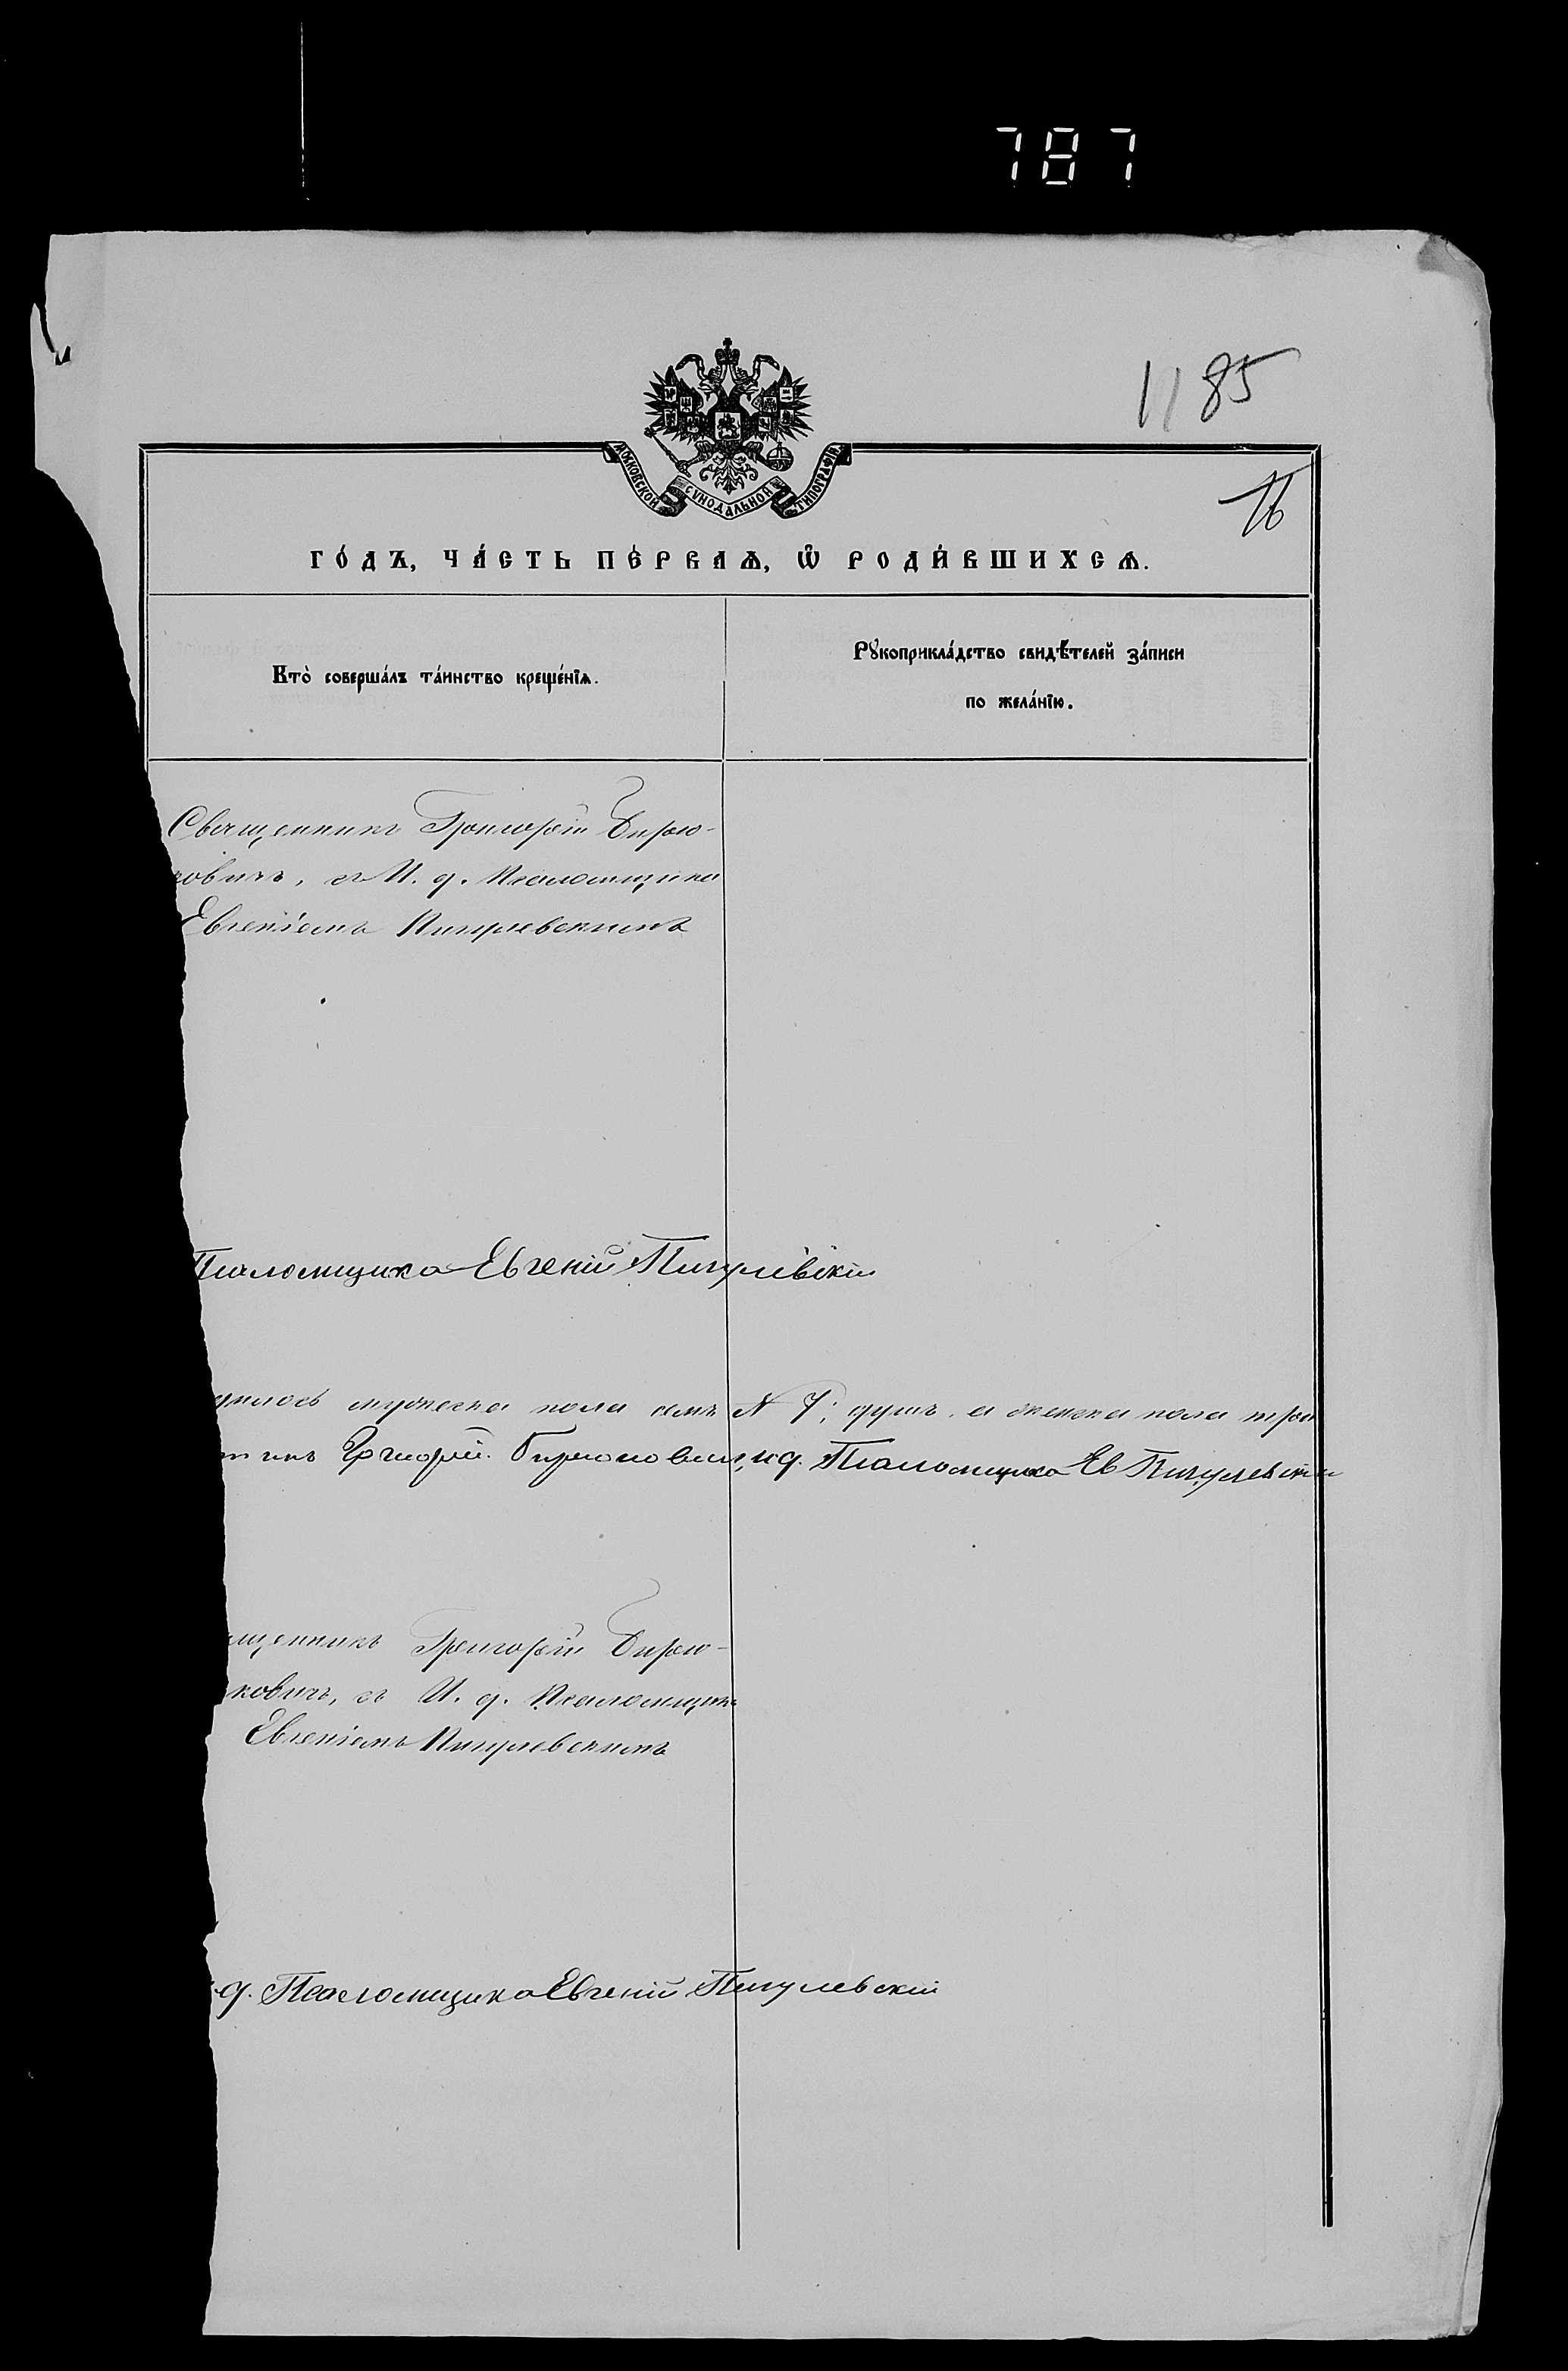 787
1185
МОСКОВСКОЙ СУНОДАЛЬНОЙ ТИПОГРАФІИ
16
ГО́ДЪ, ЧА́СТЬ ПЕ́РВАѦ, Ѡ҆ РОДИ́ВШИХСѦ.
Кто̀ соверша́лъ та́инство креще́нїѧ.
Рꙋкоприкла́дство свидѣ́телей за́писи
по жела́нїю.
Священникъ Григорій Бирю-
ковичъ, съ И. д. Псаломщика
Евгеніемъ Пигулевскимъ
Псаломщика Евгеній Пигулевскій
дилось мужеска пола семь № 7; душъ, а женска пола трои
никъ Григорій Бирюковичъ, и д. Псаломщика Ев Пигулевскій
щенникъ Григорій Бирю-
ковичъ, съ И. д. Псаломщика
Евгеніемъ Пигулевскимъ
д. Псаломщика Евгеній Пигулевскій